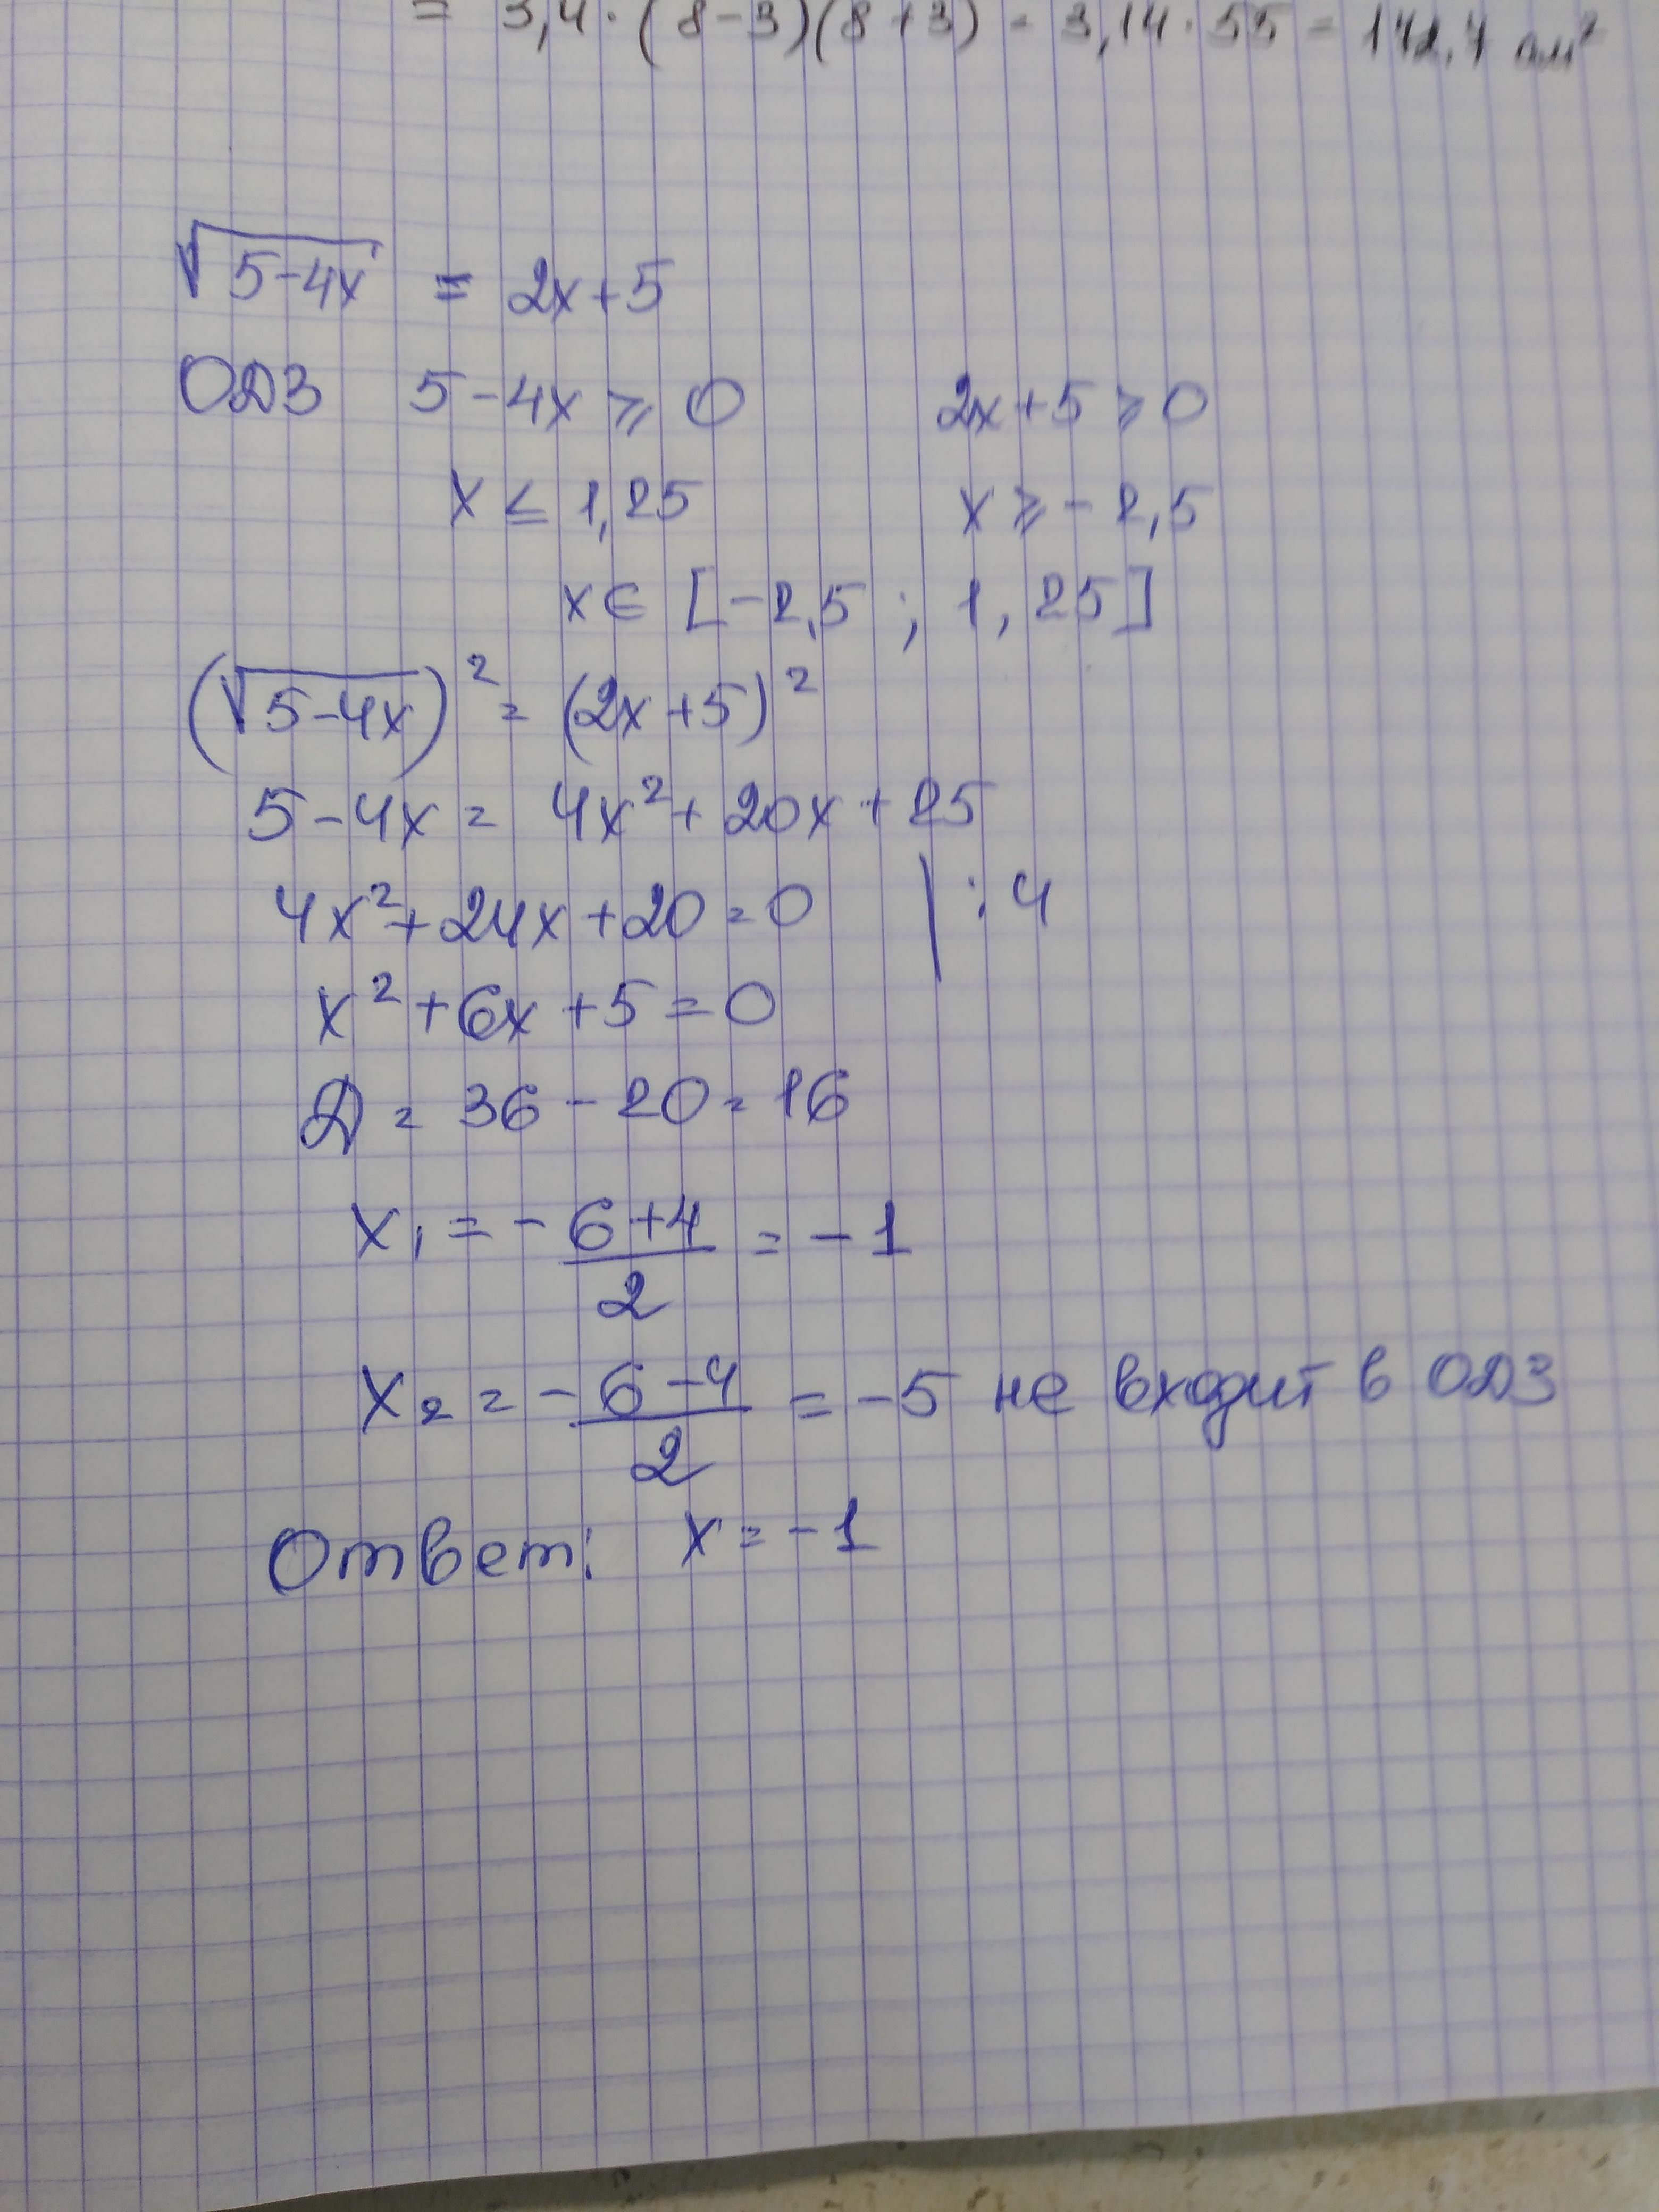 = 3,4 · (8-3)(8+3) = 3,14 · 55 = 172,7 см²
√(5-4x) = 2x+5
ОДЗ 5-4x ⩾ 0 2x+5 ⩾ 0
x ≤ 1,25 x ⩾ -2,5
x ∈ [-2,5 ; 1,25]
(√(5-4x))² = (2x+5)²
5-4x = 4x²+20x+25
4x²+24x+20=0 | : 4
x²+6x+5=0
D = 36-20=16
x₁ = (-6+4)/2 = -1
x₂ = (-6-4)/2 = -5 не входит в ОДЗ
Ответ: x = -1